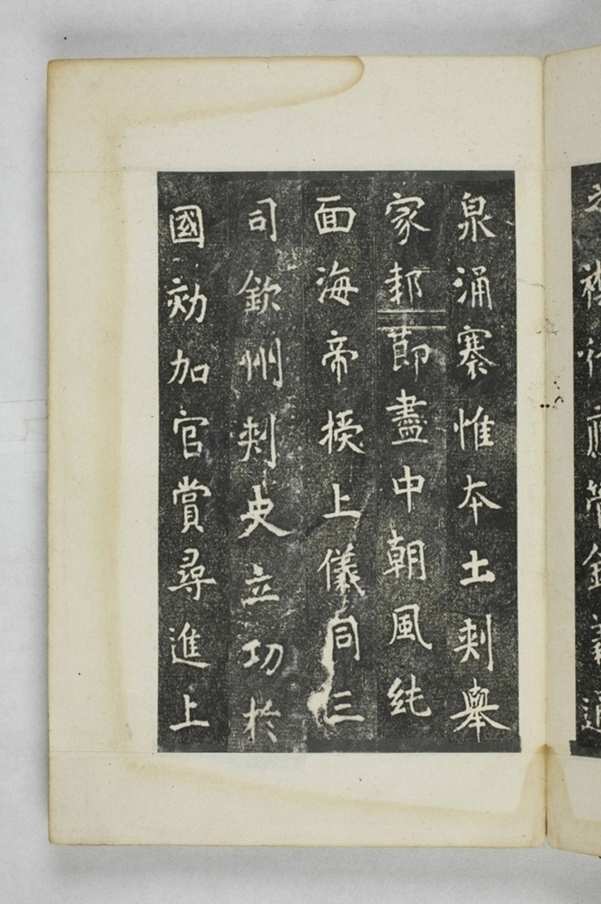 泉涌褰惟本土刺舉
家邦節盡中朝風純
面海帝授上儀同三
司欽州刺史立功於
國効加官賞尋進上